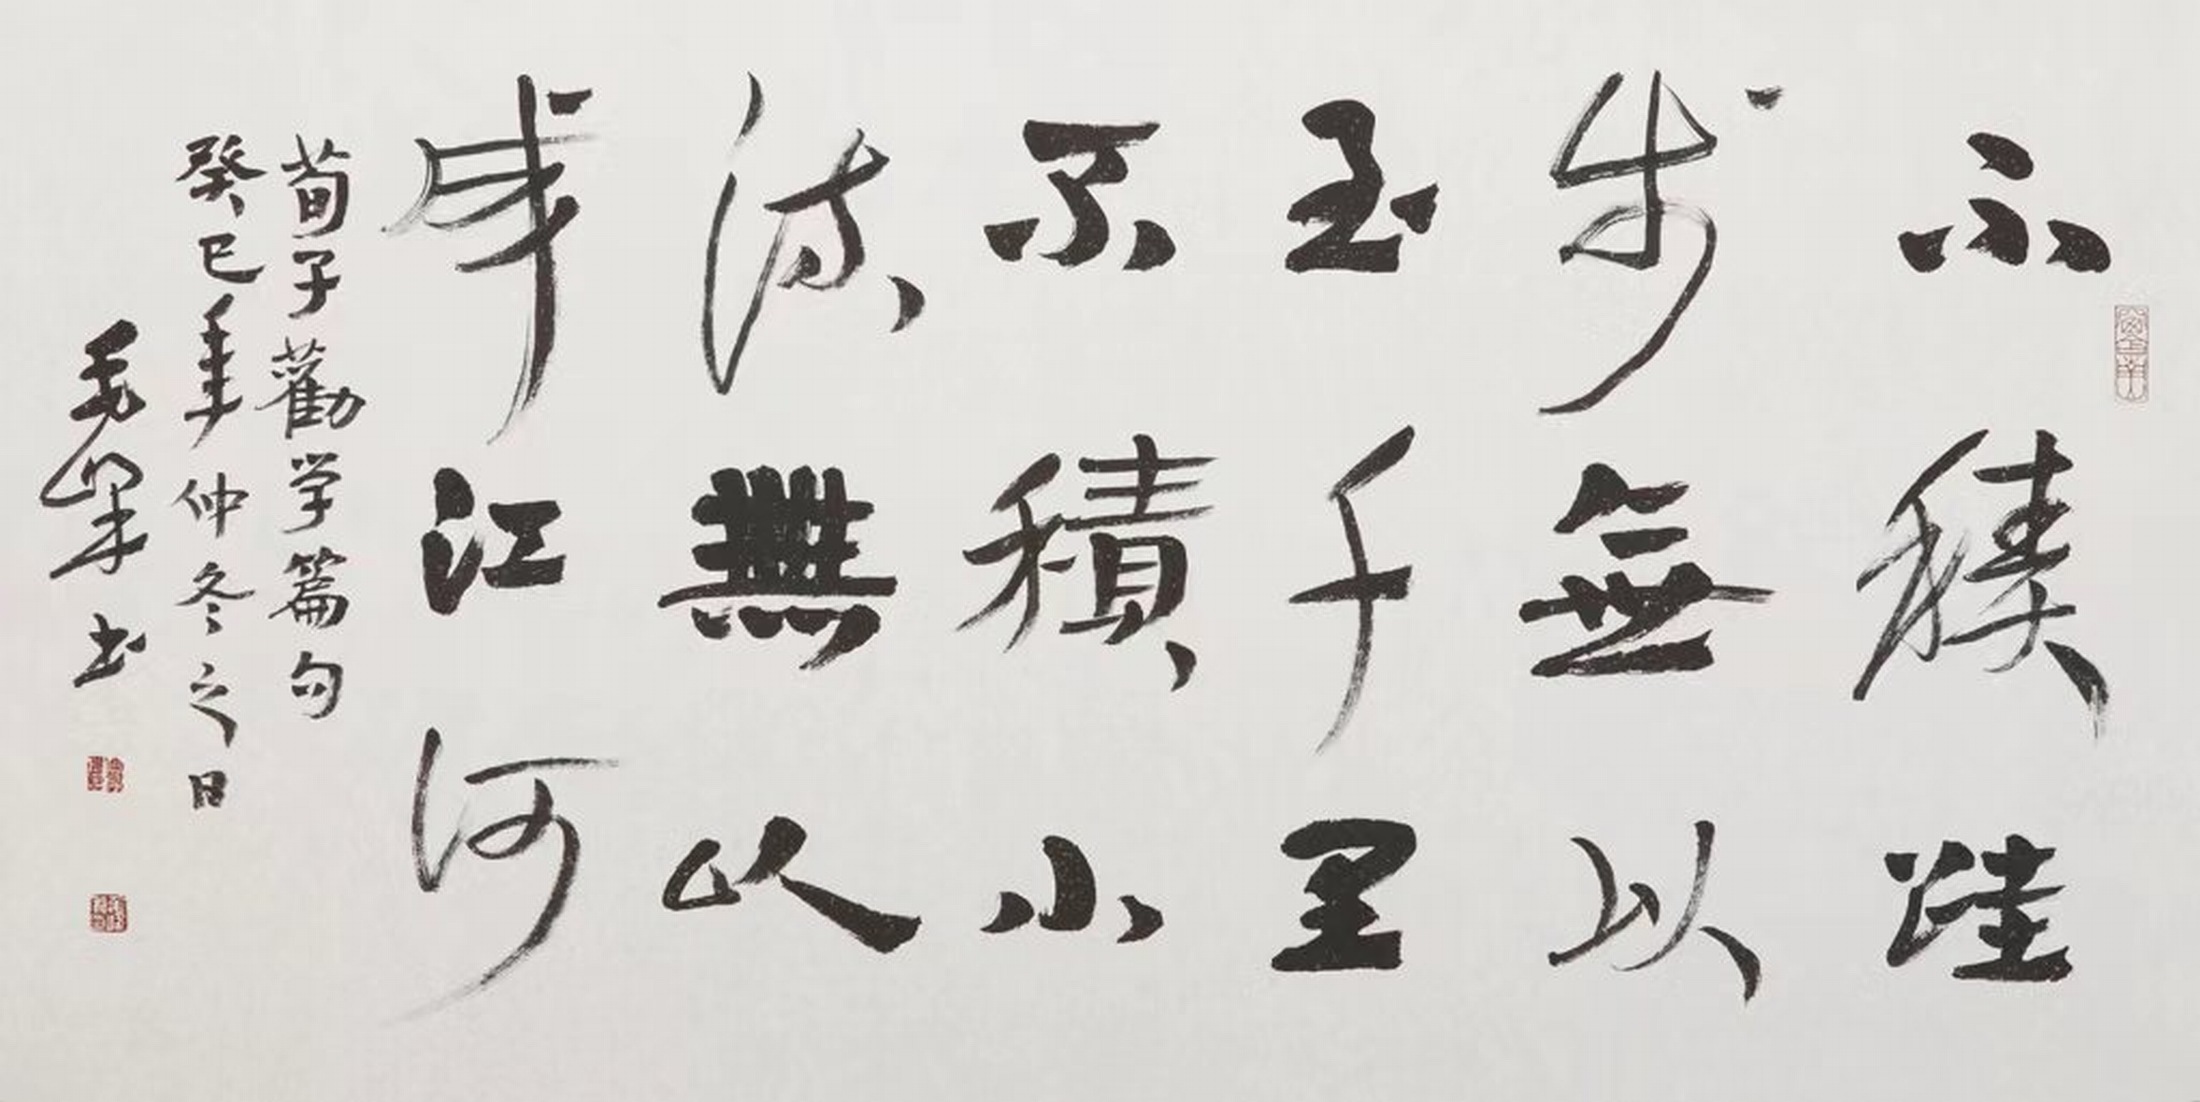 不積跬
步無以
至千里
不積小
流無以
成江河
荀子勸学篇句
癸巳年仲冬之日
毛书